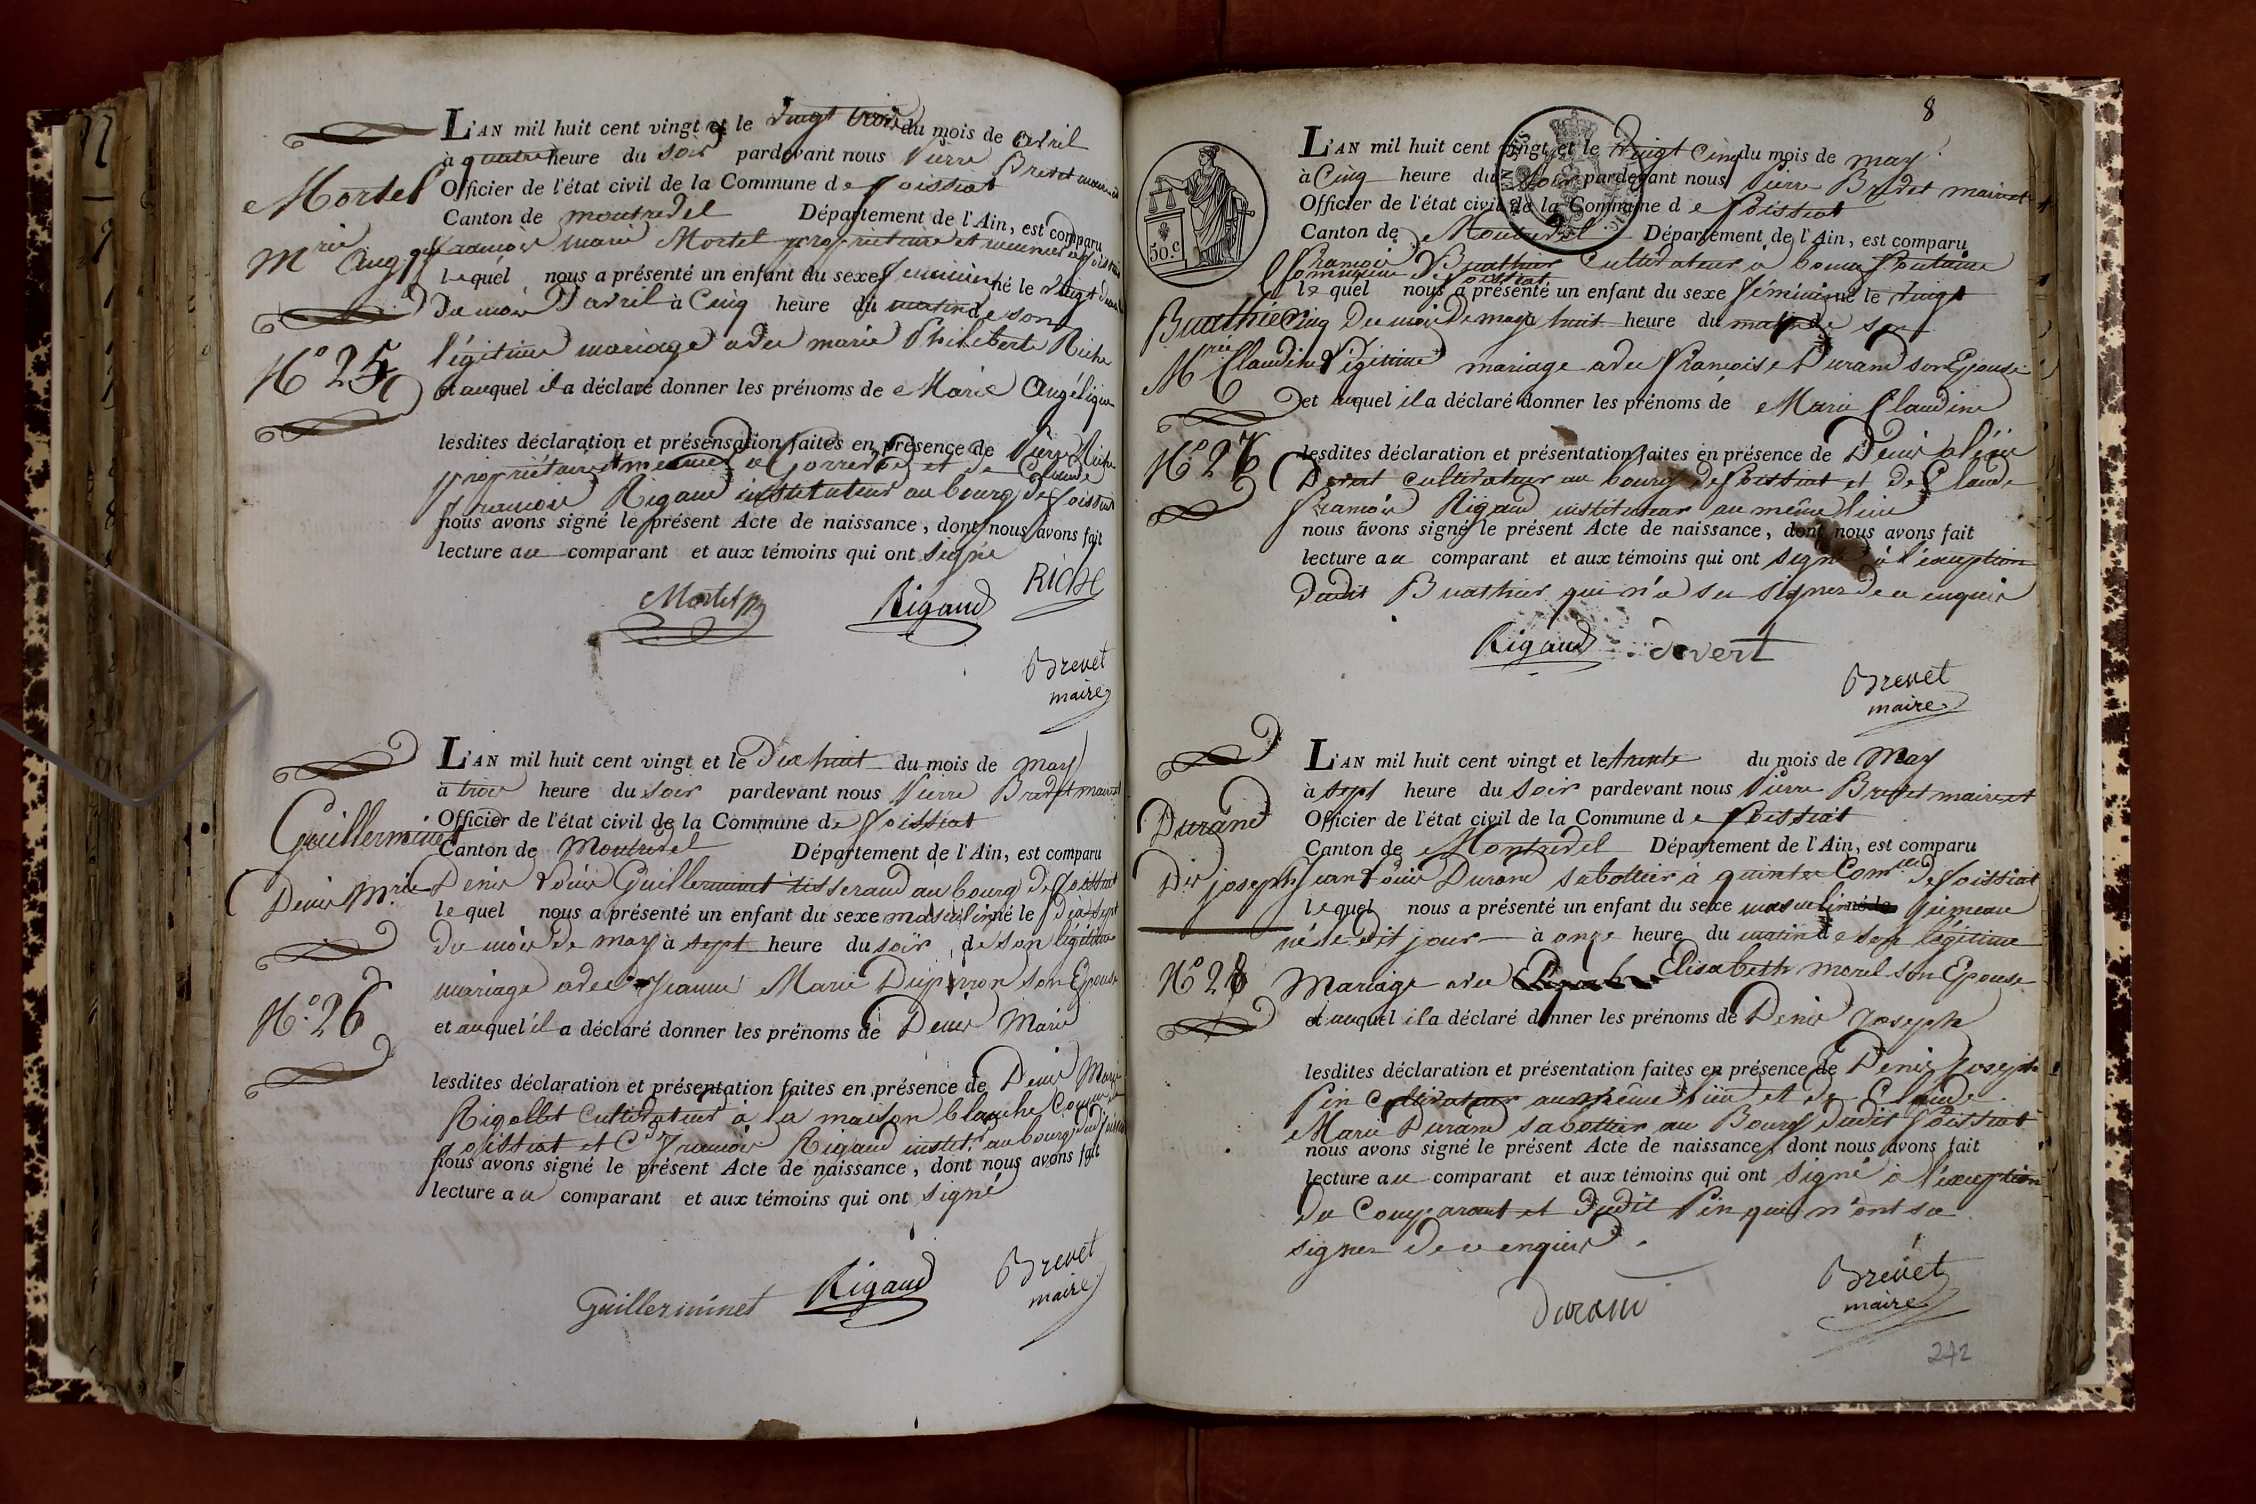 L'AN mil huit cent vingt et le vingt trois du mois de avril
à quatre heure du soir pardevant nous Pierre Brevet maire et
Mortel
Officier de l'état civil de la Commune de foissiat
Canton de montrevel Département de l'Ain, est comparu
Mrie Angque
françois marie Mortel propriétaire et meunier à foissiat
lequel nous a présenté un enfant du sexe féminin né le vingt deux
du mois d'avril à Cinq heure du matin de son
N° 25
légitime mariage avec marie Philiberte Riche
et auquel il a déclaré donner les prénoms de Marie Angélique
lesdites déclaration et présensation faites en présence de Pierre Riche
propriétaire et meunier à Gorrevod et de Claude
françois Rigaud instituteur au bourg de foissiat
nous avons signé le présent Acte de naissance, dont nous avons fait
lecture au comparant et aux témoins qui ont signé
Mortel Rigaud RICHE
Brevet
maire
L'AN mil huit cent vingt et le Dix huit du mois de may
à trois heure du soir pardevant nous Pierre Brevet maire et
Officier de l'état civil de la Commune de foissiat
Guillerminet
Canton de Montrevel Département de l'Ain, est comparu
Denis Mrie
Denis Louis Guillerminet tisserand au bourg de foissiat
lequel nous a présenté un enfant du sexe masculin né le dix sept
du mois de may à sept heure du soir, de son légitime
mariage avec Jeanne Marie Duperron son Epouse
N° 26
et auquel il a déclaré donner les prénoms de Denis Marie
lesdites déclaration et présentation faites en présence de Denis Marie
Rigollet Cultivateur à la maison blanche Commune de
foissiat et Cde françois Rigaud institr au bourg dud foissiat
nous avons signé le présent Acte de naissance, dont nous avons fait
lecture au comparant et aux témoins qui ont signé
Guillerminet Rigaud Brevet
maire
8
L'AN mil huit cent vingt et le vingt Cinq du mois de may
à Cinq heure du soir pardevant nous Pierre Brevet maire et
Officier de l'état civil de la Commune de foissiat
50.c
Canton de Montrevel Département de l'Ain, est comparu
François Buathier Cultivateur à bonne fontaine
Commune de foissiat
lequel nous a présenté un enfant du sexe féminin né le vingt
Buathier
Cinq du mois de may à huit heure du matin de son
Mrie Claudine
légitime mariage avec françoise Durand son Epouse
et auquel il a déclaré donner les prénoms de Marie Claudine
N° 27
lesdites déclaration et présentation faites en présence de Denis
Devert cultivateur au bourg de foissiat et de Claude
françois Rigaud instituteur au même lieu
nous avons signé le présent Acte de naissance, dont nous avons fait
lecture au comparant et aux témoins qui ont signé à l'exception
dudit Buathier qui n'a su signer de ce enquis
Rigaud devert
Brevet
maire
L'AN mil huit cent vingt et le trente du mois de may
à sept heure du soir pardevant nous Pierre Brevet maire et
Durand
Officier de l'état civil de la Commune de foissiat
Canton de Montrevel Département de l'Ain, est comparu
Dis joseph
Jean Louis Durand sabottier à quinte Comne de foissiat
lequel nous a présenté un enfant du sexe masculin jumeau
né ledit jour à onze heure du matin de son légitime
N° 28
Mariage avec Elisabeth morel son Epouse
et auquel il a déclaré donner les prénoms de Denis Joseph
lesdites déclaration et présentation faites en présence de Denis Joseph
Pin cultivateur au même lieu et de Claude
Marie Durand sabottier au Bourg dudit foissiat
nous avons signé le présent Acte de naissance, dont nous avons fait
lecture au comparant et aux témoins qui ont signé à l'exception
du Comparant et dudit Pin qui n'ont su
signer de ce enquis.
Durand
Brevet
maire
242